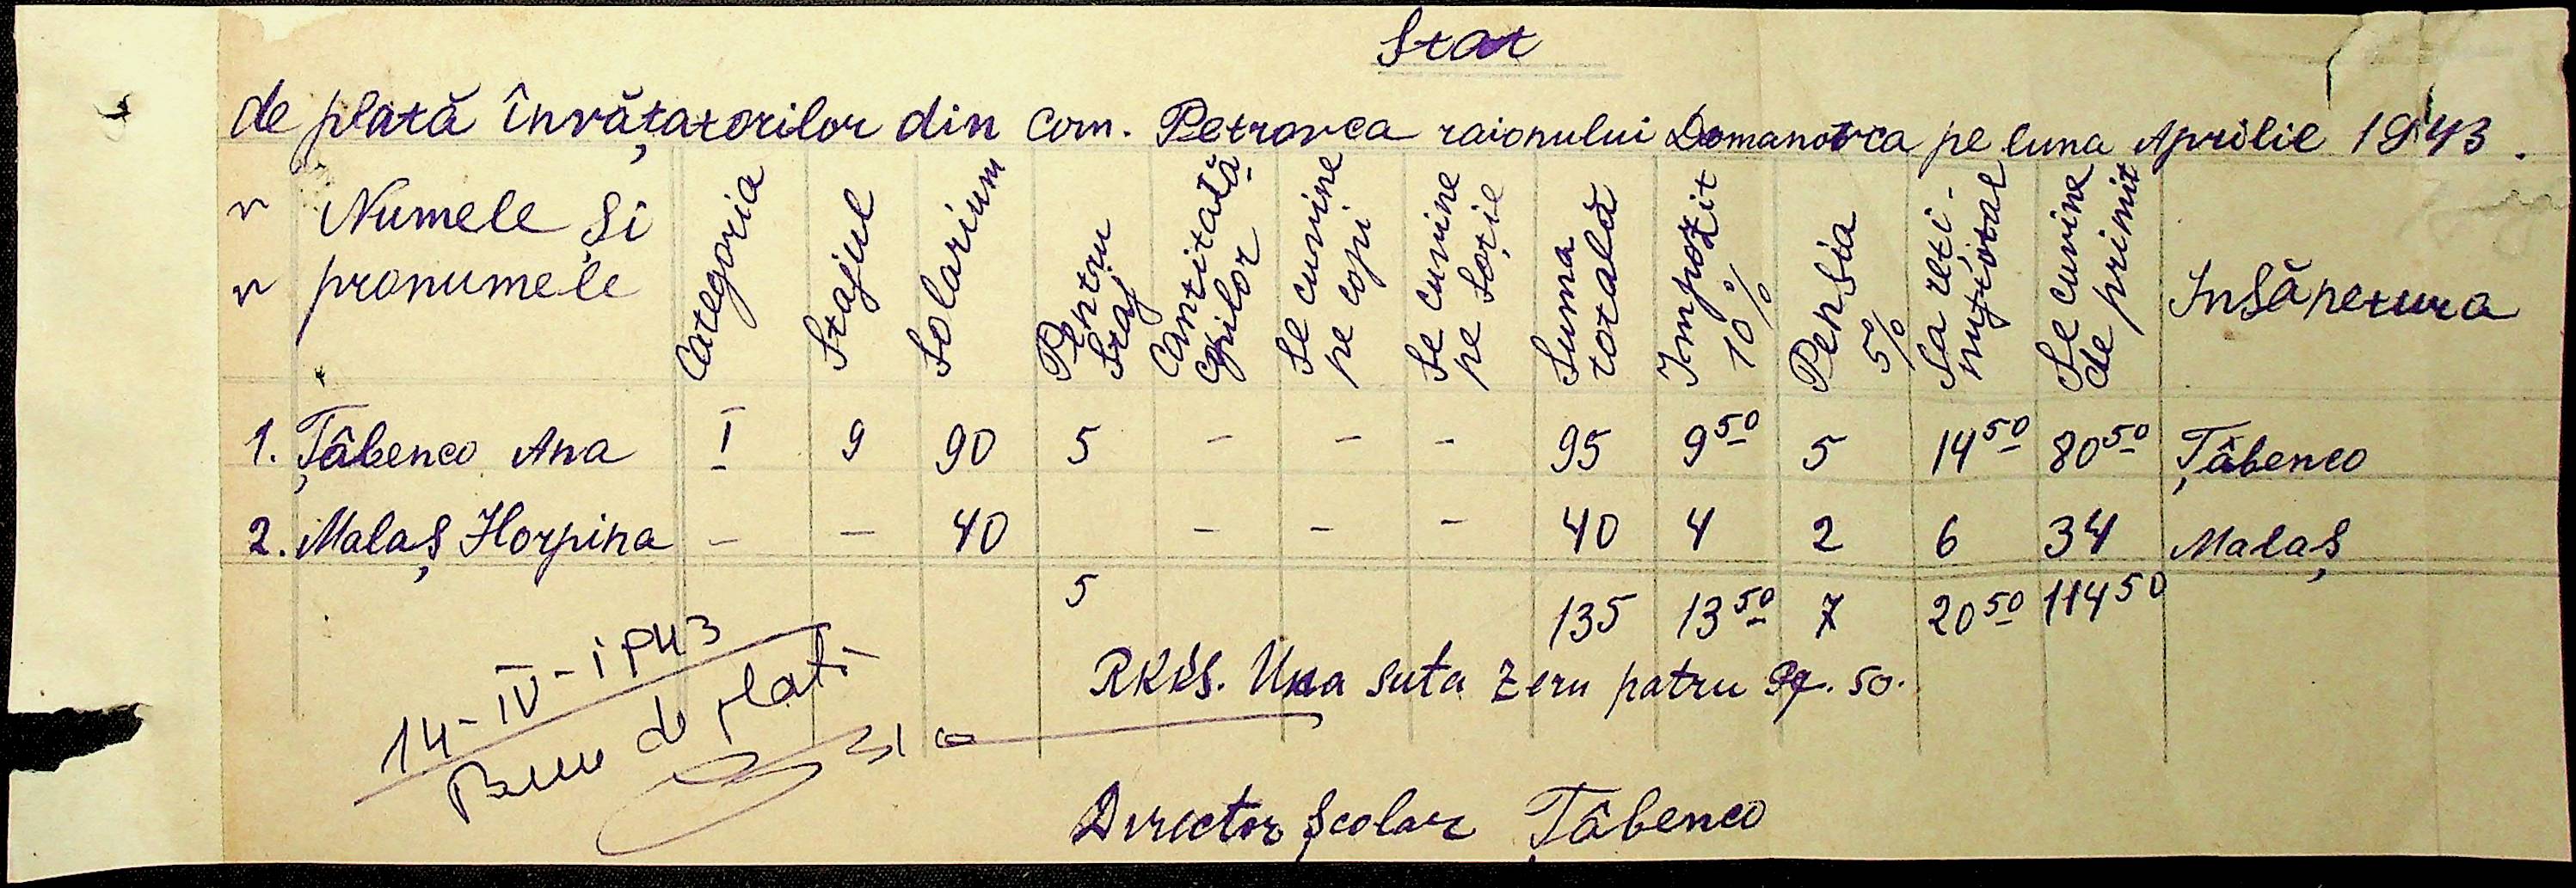 Stat
de plată învățatorilor din com. Petrovca raionului Domanovca pe luna Aprilie 1943.
n n Numele și pronumele Categoria Stajul Solarium Pentru staj Cantitată copiilor Se cuvine pe copii Se cuvine pe soție Suma totală Impozit 10% Pensia 5% Sa reținut total Se cuvine de primit Insăpetura
1. Țâbenco Ana I 9 90 5 - - - 95 9 50 5 14 50 80 50 Țâbenco
2. Malaș Horpina - - 40 - - - 40 4 2 6 34 Malaș
5 135 13 50 7 20 50 114 50
14-IV-1943
Bun de plată
RKKS. Una suta zeru patru pf. 50.
Director școlar Țâbenco